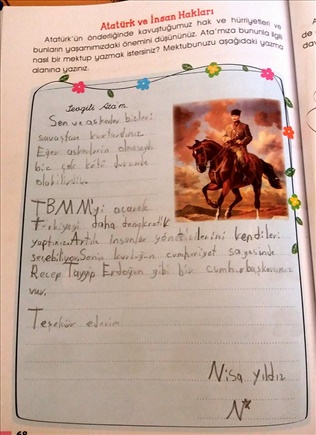 Atatürk ve İnsan Hakları
Atatürk'ün önderliğinde kavuştuğumuz hak ve hürriyetleri ve
bunların yaşamımızdaki önemini düşününüz. Ata'mıza bununla ilgili
nasıl bir mektup yazmak istersiniz? Mektubunuzu aşağıdaki yazma
alanına yazınız.
Sevgili Ata'm.
Sen ve askerler bizleri
savaştan kurtardınız.
Eğer askerlerin olmasaydı
biz çok kötü durumda
olabilirdik.
TBMM'yi açarak
Türkiyeyi daha demokratik
yaptınız. Artık insanlar yöneticilerini kendileri
seçebiliyor. Senin kurduğun cumhuriyet sayesinde
Recep Tayyip Erdoğan gibi bir cumhurbaşkanımız
var.
Teşekür ederim
Nisa yıldız
68